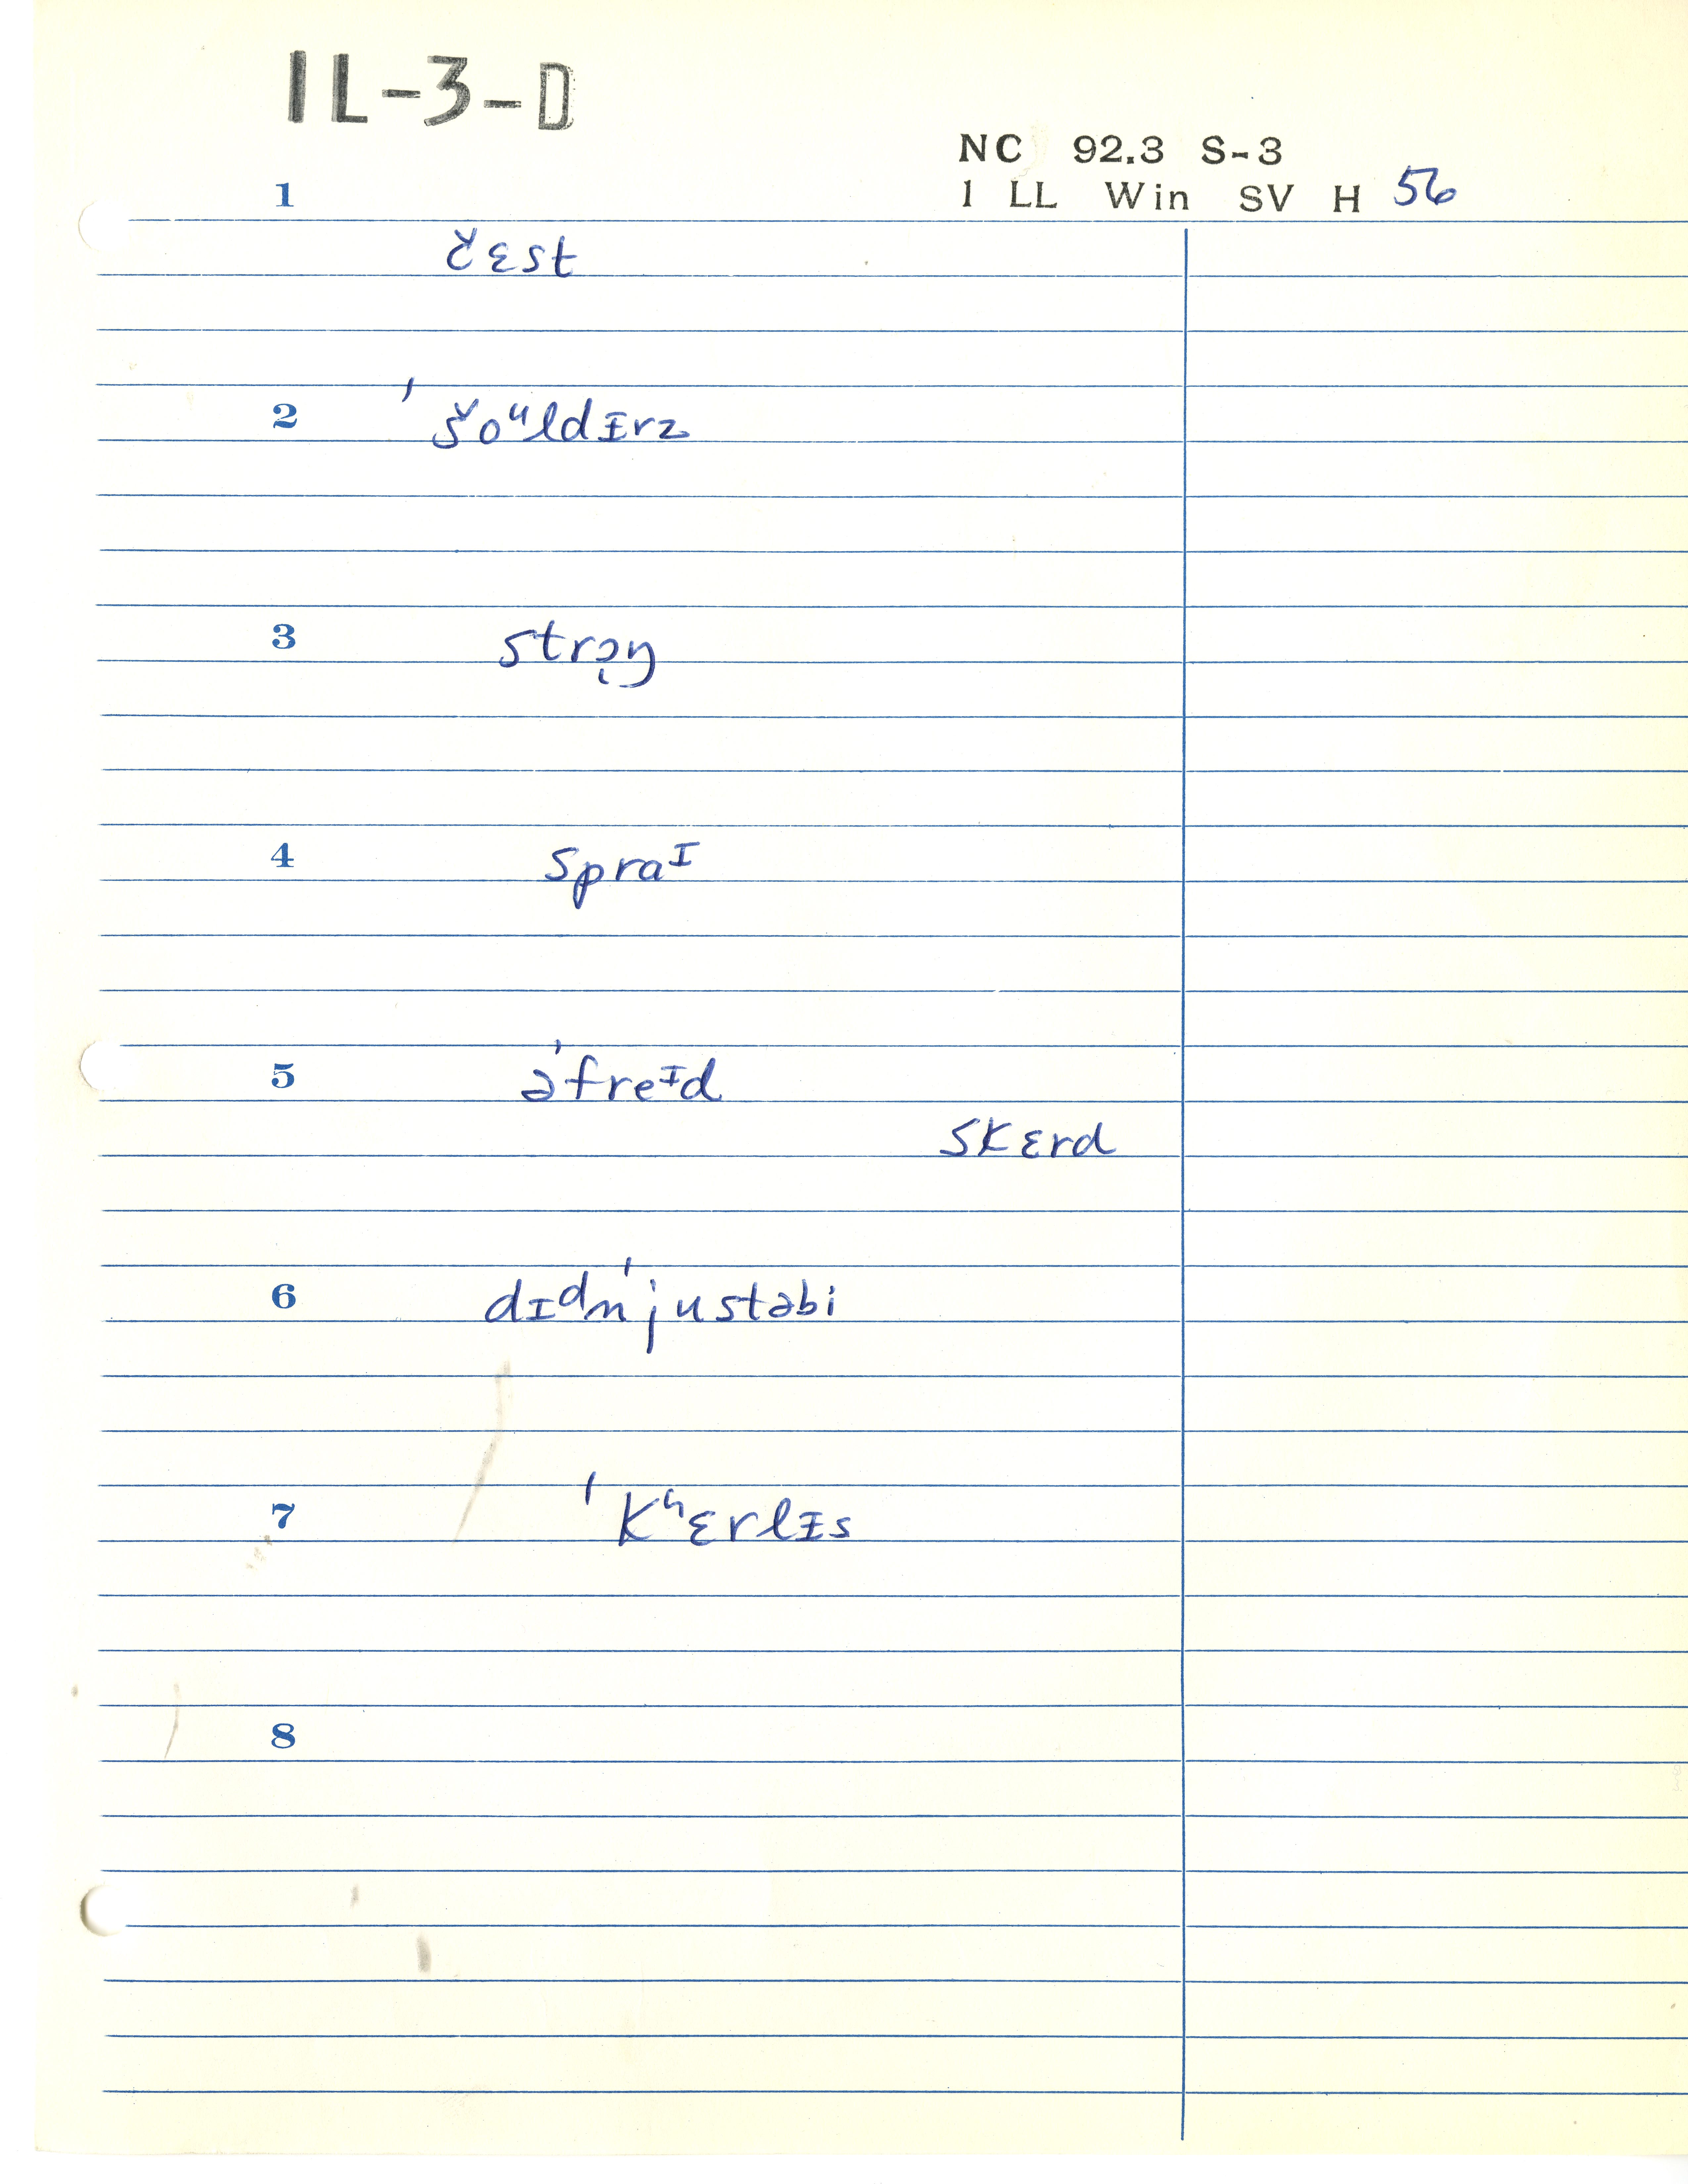 IL-3-D
NC 92.3 S-3
1 LL Win SV H 56
1
čɛst
2 ˈšoᶸldɪrz
3 strɔ̨ŋ
4 spraᴵ
5 əˈfreᴵd
skɛrd
6 dɪᵈnˈjustəbi
7 ˈkʰɛrlɪs
8